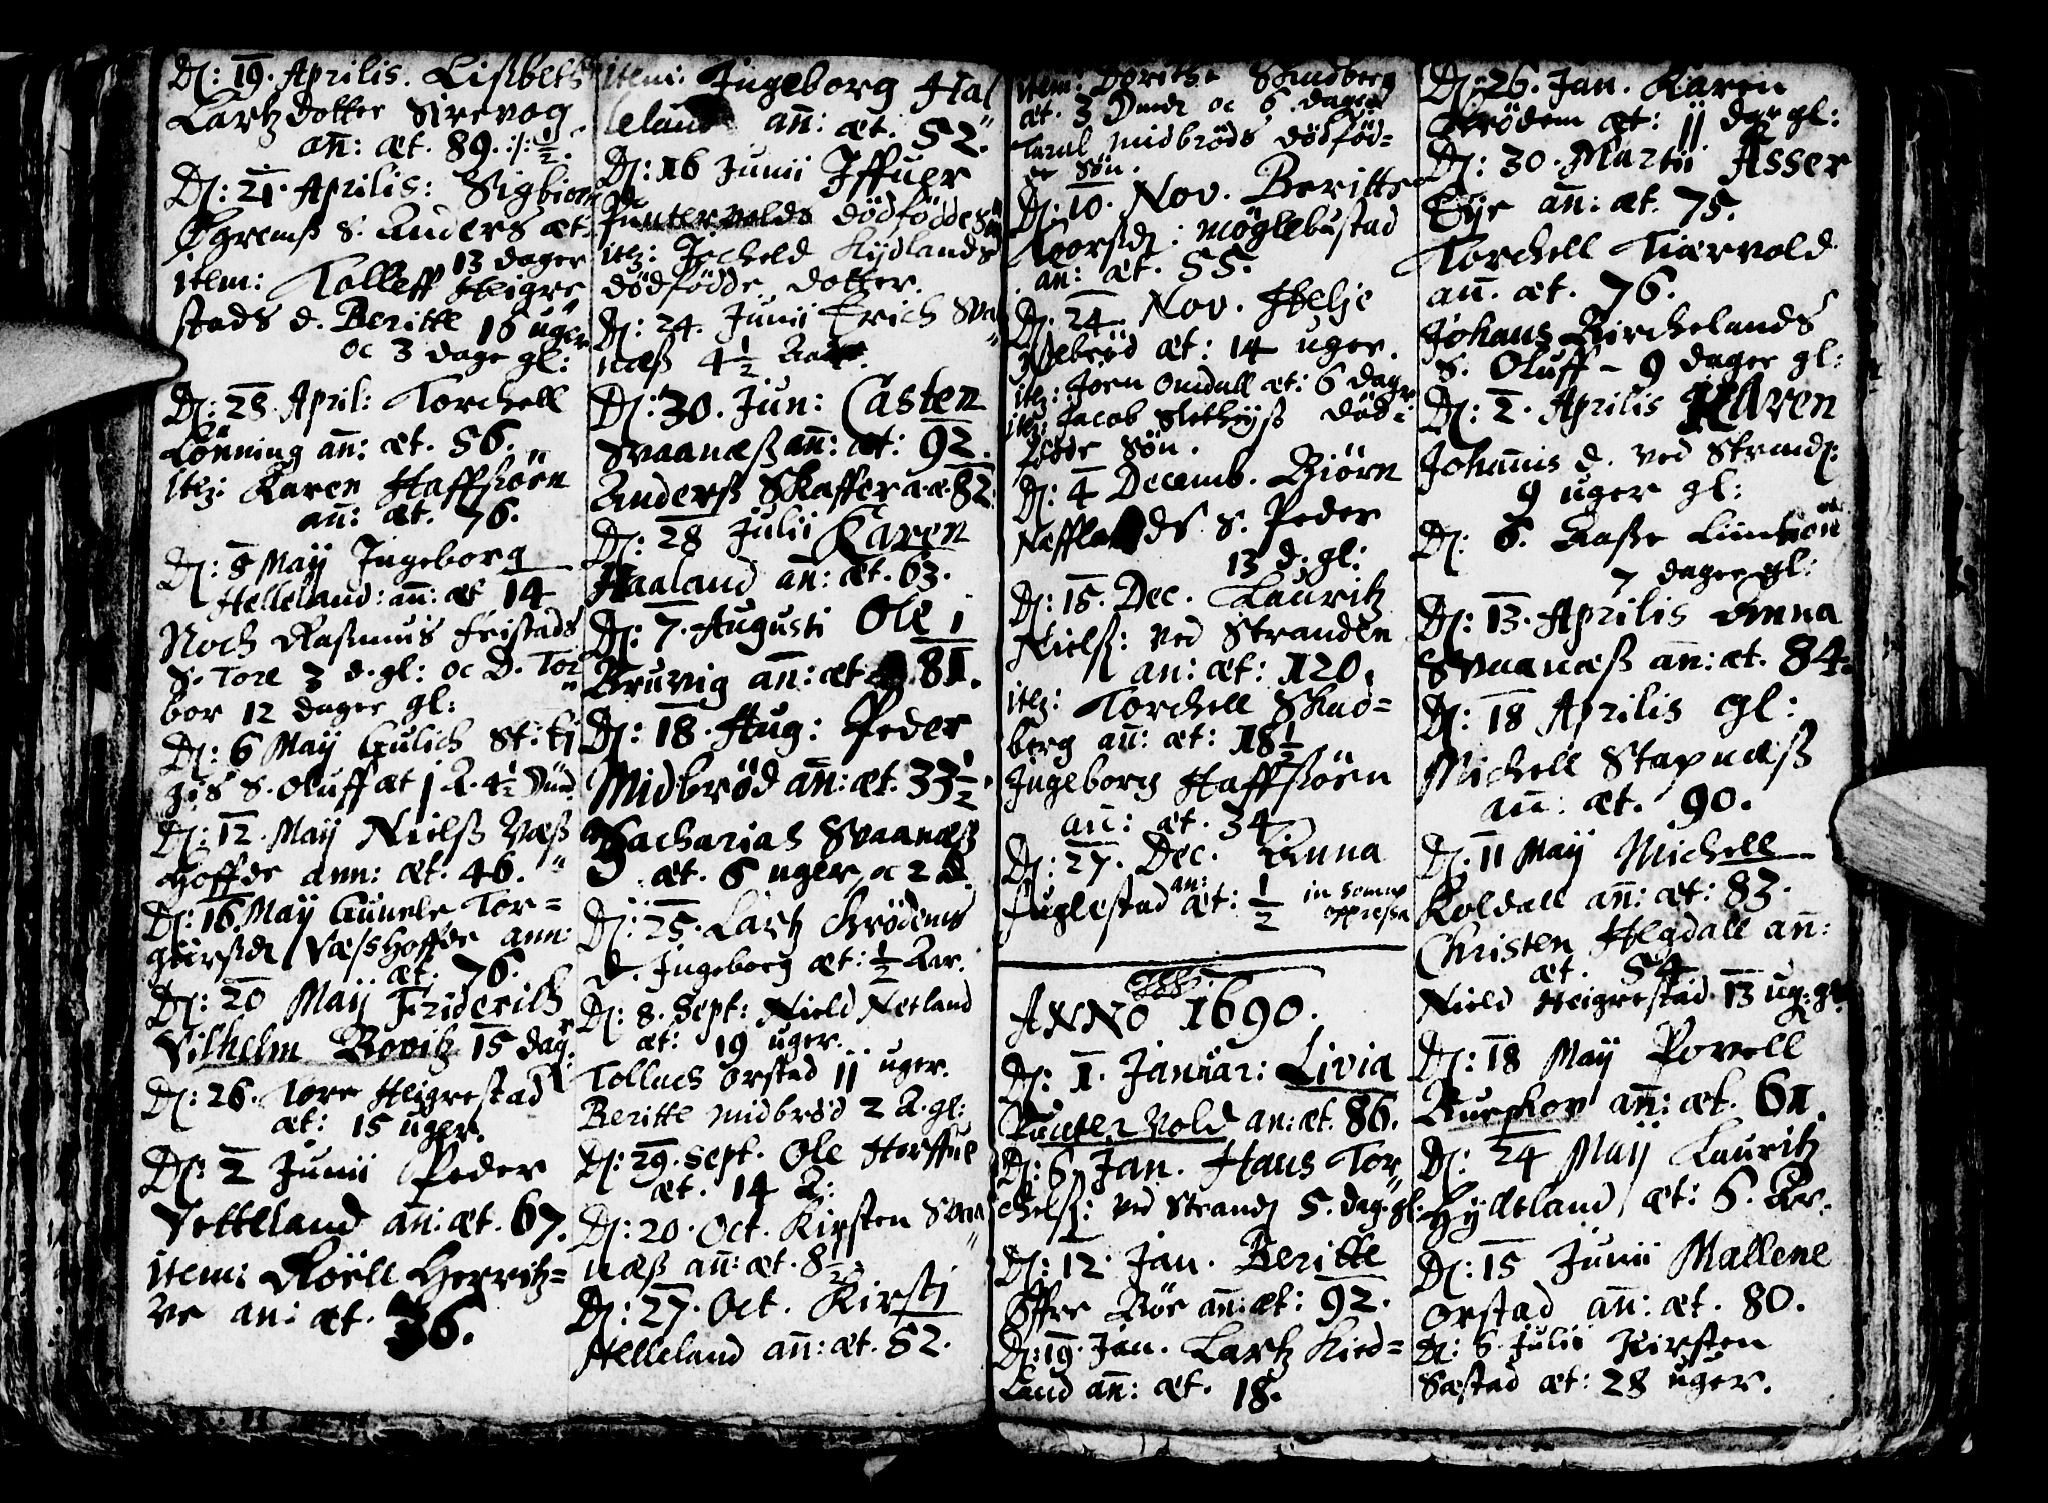 D: 19. Aprilis. Lißbeth
Lartz dotter Sirevog
añ: æt. 89. ½.
D: 21. Aprilis: Sigbiorn
Øgremß S. Anders æt.
13 dager
item: Tolleff Heigre
stads d. Beritte 16 uger
oc 3 dage gl:
D: 28 April: Torchell
Lønning añ: æt. 56.
itz: Karen Haffsøen
añ: æt. 76.
D: 5 Maij Ingeborg
Helleland: añ: æt 14
Noch Rasmus Feistads
S. Tore 3 d. gl: oc D. Tor
bor 12 dager gl:
D: 6 Maij
S. Oluff æt 1 A. 4½
D: 12. Maij Nielß Væß
hoffde ann: æt. 46.
D: 16. Maij Gunele Tor=
Væsshoffde ann:
æt. 76.
D: 20 Maij Friderich
Vilhelm 15 dag
D: 26. Tore Heigrestad
æt: 15 uger.
D: 2 Junii Peder
Vettelland añ: æt. 67.
item: Røell
an: æt. 36.
item: Ingeborg Hal
leland añ: æt. 52.
D: 16 Junii Iffuer
Puntervolds dødfødde Søn
itz: Kydlands
dødfødde dotter.
D: 24. Junii Erich Sva
næß 4½
D: 30. Jun: Casten
Svaanæß añ: æt: 92.
Anderß Skaffer a. æ. 82.
D: 28 Julii Karen
Haaland añ: æt. 63.
D: 7. Augusti Ole i
Bruvig añ: æt. 81.
D: 18. Aug: Peder
Midbrød añ: æt. 33½.
Zacharias Svaanæß
æt. 6 uger, oc 2 d
D: 25. Lartz Grødems
d. Ingeborg æt: ½ Aar.
D: 8. Sept: Nield Netland
æt: 19 uger.
Tollack Orstad 11 uger.
Beritte Midbrød 2 A. gl:
D: 29. Sept. Ole
æt. 14 A:
D: 20. Oct. Kirsten Svaa
næß añ: æt. 8½
D: 27. Oct. Kirsti
Helleland añ: æt. 52.
item: Dorithe Skadberg
æt. 3 oc 6. dager
Taral Midbrøds dødfød=
de Søn.
D: 10. Nov. Beritte
møglebustad
añ: æt. 55.
D: 24. Nov. Helje
æt: 14 uger.
itz: Joen Omdall æt: 6 dag
itz: Jacob død:
fødde Søn.
D: 4 Decemb. Biørn
S. Peder
13 d. gl:
D: 15. Dec. Lauritz
Nielß: ved Stranden
an: æt: 120.
itz: Torchell Skad=
berg añ: æt: 18½
Ingeborg Haffsøen
añ: æt. 34
D: 27. Dec. Anna
Fuglestad an: æt: ½ in somno
oppressa
ANNO 1690.
D: 1. Januar: Livia
Puntervold an: æt. 86.
D: 6 Jan. Hans Tor
chelß: ved Strand 5. dag. gl:
D: 12. Jan. Beritte
Øffre Bøe añ: æt: 92.
D: 19. Jan. Lartz Kied=
land añ: æt. 18.
D: 26. Jan. Karen
Grødem æt: 11 dage gl:
D: 30. Martii Asser
Eye añ: æt. 75.
Torchell Tiærvold
añ. æt. 76.
Johans Birchelands
S. Oluff - 9 dager gl:
D: 2. Aprilis Karen
Johannis d. ved Strand:
9 uger gl:
D: 6. Aaße
7 dager gl:
D: 13. Aprilis Anna
Svaanæß añ: æt. 84.
D: 18 Aprilis gl:
Michell Stapnæß
añ: æt. 90.
D: 11 Maij Michell
Koldall añ: æt: 83.
Christen Hegdall añ:
æt. 54
Nield Heigrestad 13 ug: gl
D: 18 Maij Povell
añ: æt. 61.
D: 24 Maij Lauritz
Hydtland æt: 6. Ar.
D: 15 Junii Mallene
Orstad añ: æt. 80.
D: 6. Julii Kirsten
Sæstad æt: 28 uger.